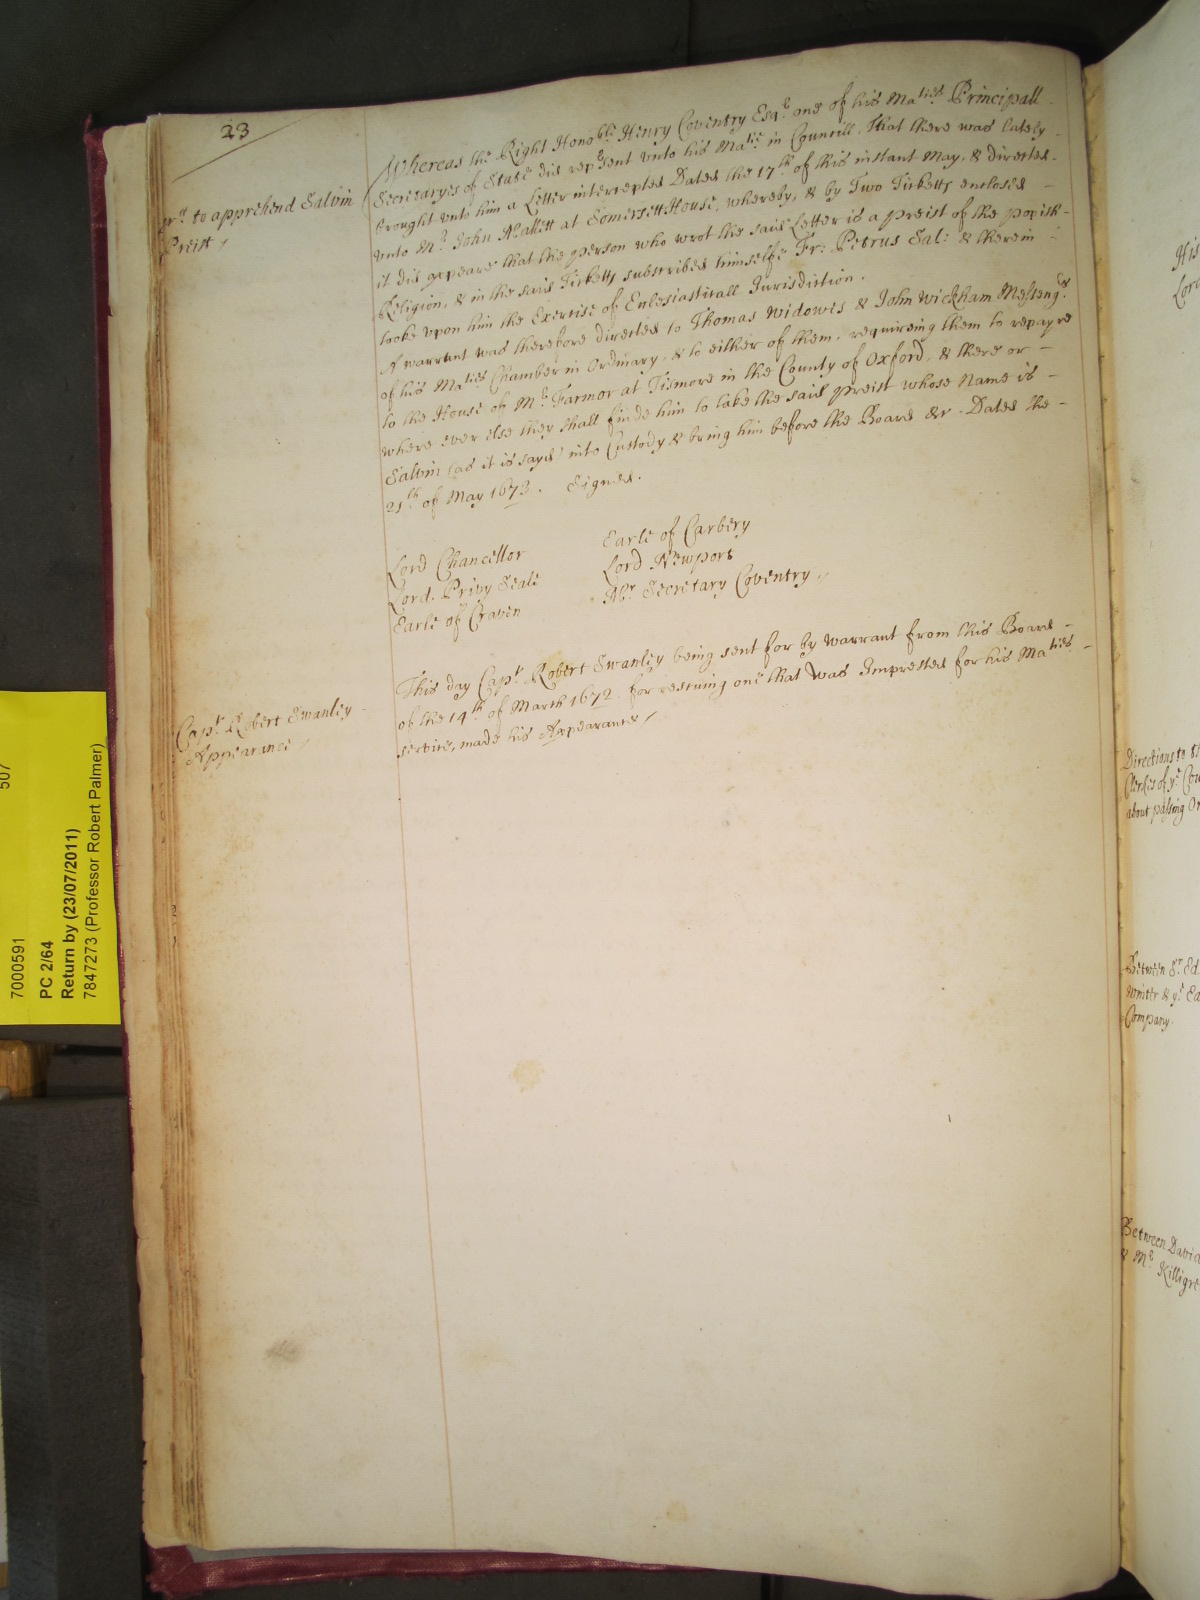 23
to apprehend Salvin
Preist
Whereas the Right Honoble Henry Coventry Esqr one of his Maties Principall
Secretaryes of State did represent vnto his Matie in Councill, That there was lately
brought vnto him a Letter intercepted Dated the 17th of this instant May, & directed
vnto Mr John Mallett at Somersett House, whereby, & by Two Ticketts enclosed
it did appeare that the person who wrot the said Letter is a preist of the popish
Religion, & in the said Ticketts subscribed himselfe Fr: Petrus Sal: & therein
tooke vpon him the Exercise of Eclesiasticall Jurisdiction.
A warrant was therefore directed to Thomas Widowes & John Wickham Messengrs
of his Maties Chamber in Ordinary, & to either of them, requireing them to repayre
to the House of Mr Farmor at Tismore in the County of Oxford, & there or
where ever else they shall finde him to take the said preist whose Name is
Salvin (as it is sayd) into Custody & bring him before the Board &c. Dated the
21th of May 1673. Signed.
Lord Chancellor
Lord Privy Seale
Earle of Craven
Earle of Carbery
Lord Newport
Mr Secretary Coventry
Capt Robert Swanley
Appearance
This day Capt Robert Swanley being sent for by warrant from this Board
of the 14th of March 1672 for rescuing one that was Impressed for his Maties
service, made his Appearance
507
7000591
PC 2/64
Return by (23/07/2011)
7847273 (Professor Robert Palmer)
His
Lord
Directions to
Clerkes of ye
about passing
Between Sr Ed
Winter & ye Ea
Company.
Between David
& Mr Killigre